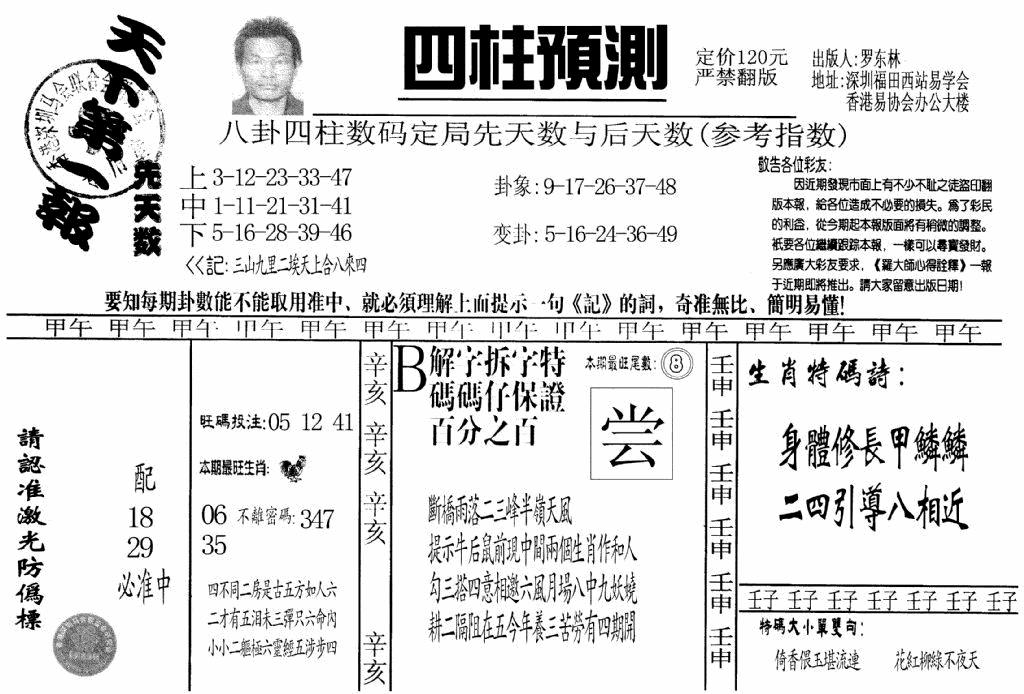 天下第一報
四柱預測
定价120元
严禁翻版
出版人:罗东林
地址:深圳福田西站易学会
香港易协会办公大楼
八卦四柱数码定局先天数与后天数(参考指数)
先天数
上 3-12-23-33-47
中 1-11-21-31-41
下 5-16-28-39-46
<<記: 三山九里二埃天上合八來四
卦象: 9-17-26-37-48
变卦: 5-16-24-36-49
敬告各位彩友:
因近期發現市面上有不少不耻之徒盜印翻
版本報,給各位造成不必要的損失。爲了彩民
的利益,從今期起本報版面將有稍微的調整。
衹要各位繼續跟踪本報,一樣可以尋寶發財。
另應廣大彩友要求,《羅大師心得詮釋》一報
于近期即將推出。請大家留意出版日期!
要知每期卦數能不能取用准中、就必須理解上面提示一句《記》的詞,奇准無比、簡明易懂!
甲午 甲午 甲午 甲午 甲午 甲午 甲午 甲午 甲午 甲午 甲午 甲午 甲午 甲午 甲午
請認准激光防僞標
配
18
29
必准中
旺碼投注:05 12 41
本期最旺生肖:
06 不離密碼:347
35
四不同二房是古五方如人六
二才有五泪未三彈只六命內
小小二軀極六靈經五涉步四
辛亥 辛亥 辛亥 辛亥
B解字拆字特
碼碼仔保證
百分之百
本期最旺尾數:⑧
尝
斷橋雨落二三峰半嶺天風
提示牛后鼠前現中間兩個生肖作和人
勾三搭四意相邀六風月場八中九妖嬈
耕二隔阻在五今年養三苦勞有四期開
壬申 壬申 壬申 壬申 壬申 壬申
生肖特碼詩:
身體修長甲鱗鱗
二四引導八相近
壬子 壬子 壬子 壬子 壬子 壬子 壬子
特碼大小單雙句:
倚香偎玉堪流連 花紅柳綠不夜天